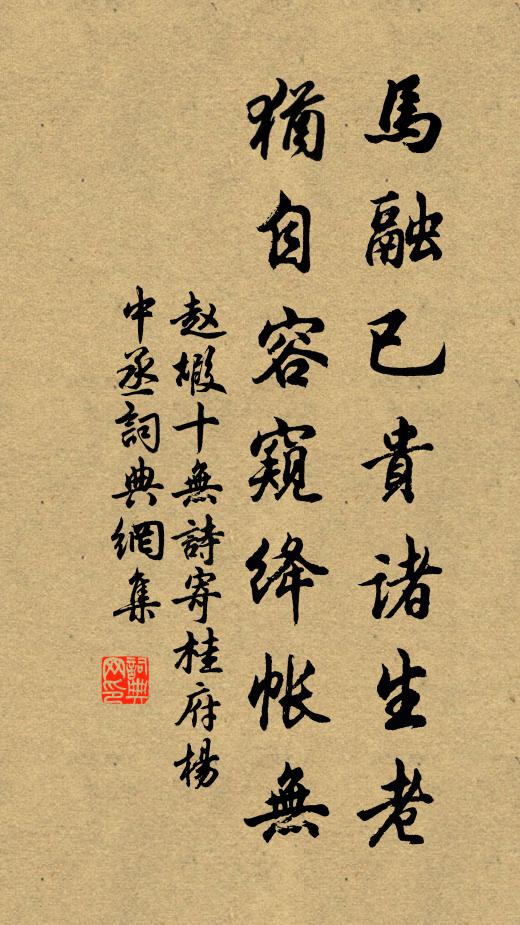 馬融已貴諸生老
猶自容窺绛帳無
赵嘏十無詩寄桂府楊
中丞詞典網集
詞典
网印